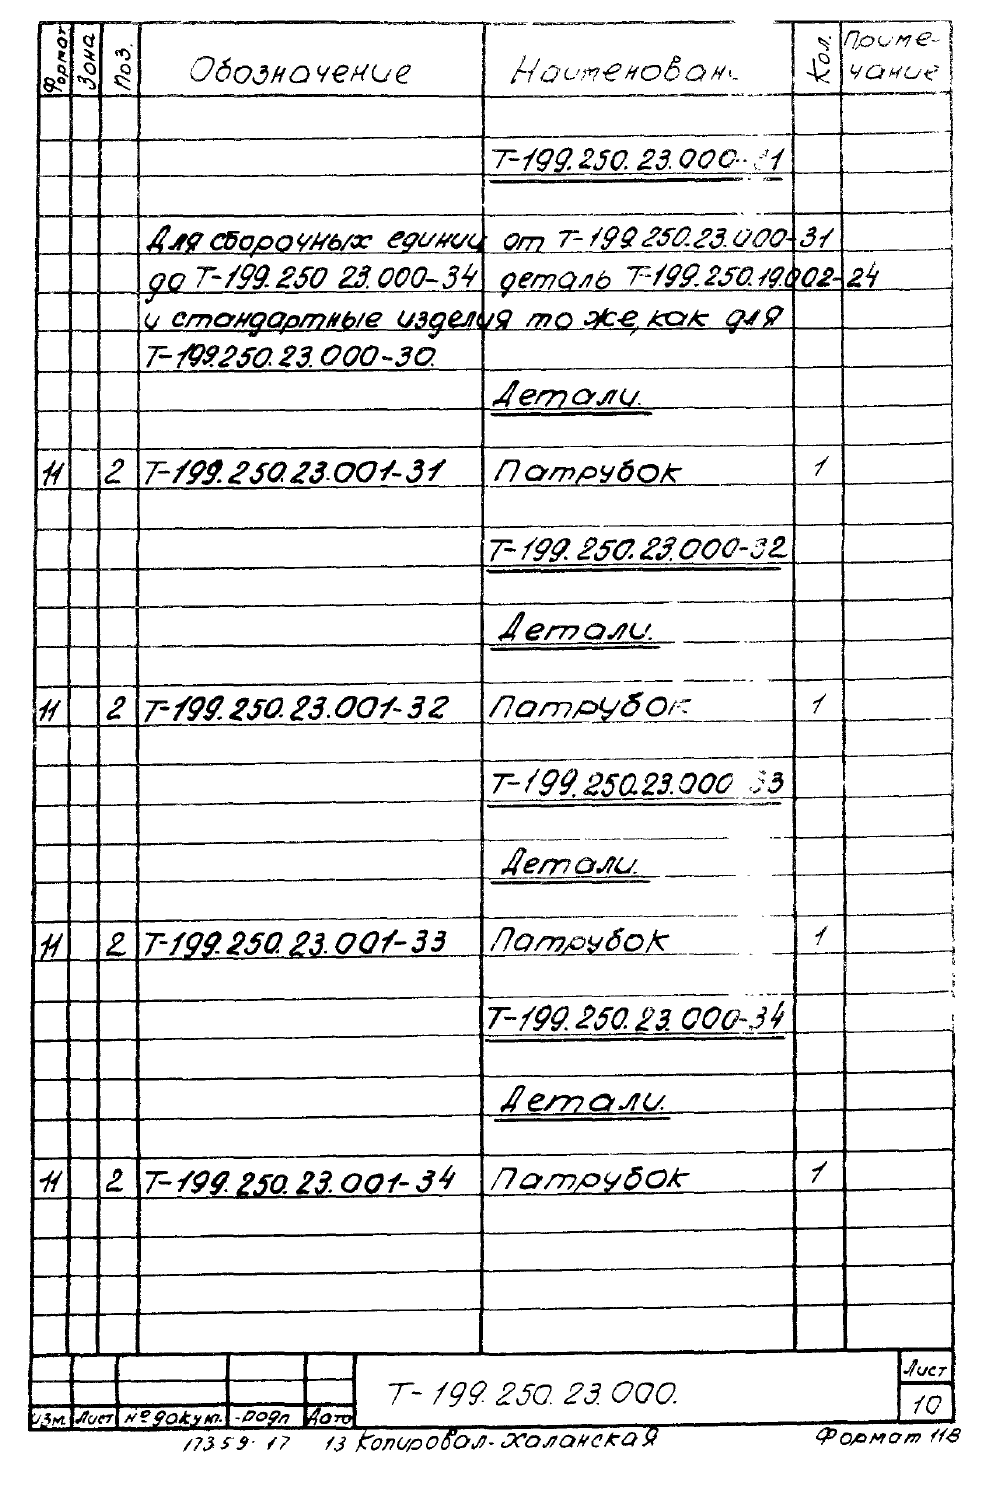 Формат Зона Поз. Обозначение Наименован Кол. Приме-
чание
Т-199.250.23.000-31
Для сборочных единиц от Т-199.250.23.000-31
до Т-199.250 23.000-34 деталь Т-199.250.19.002-24
и стандартные изделия то же, как для
Т-199.250.23.000-30.
Детали.
11 2 Т-199.250.23.001-31 Патрубок 1
Т-199.250.23.000-32
Детали.
11 2 Т-199.250.23.001-32 Патрубок 1
Т-199.250.23.000 33
Детали.
11 2 Т-199.250.23.001-33 Патрубок 1
Т-199.250.23.000-34
Детали.
11 2 Т-199.250.23.001-34 Патрубок 1
Т-199.250.23.000.
Лист
10
Изм. Лист № докум. Подп Дата
17359 17 13 Копировал-Халанская Формат 11В